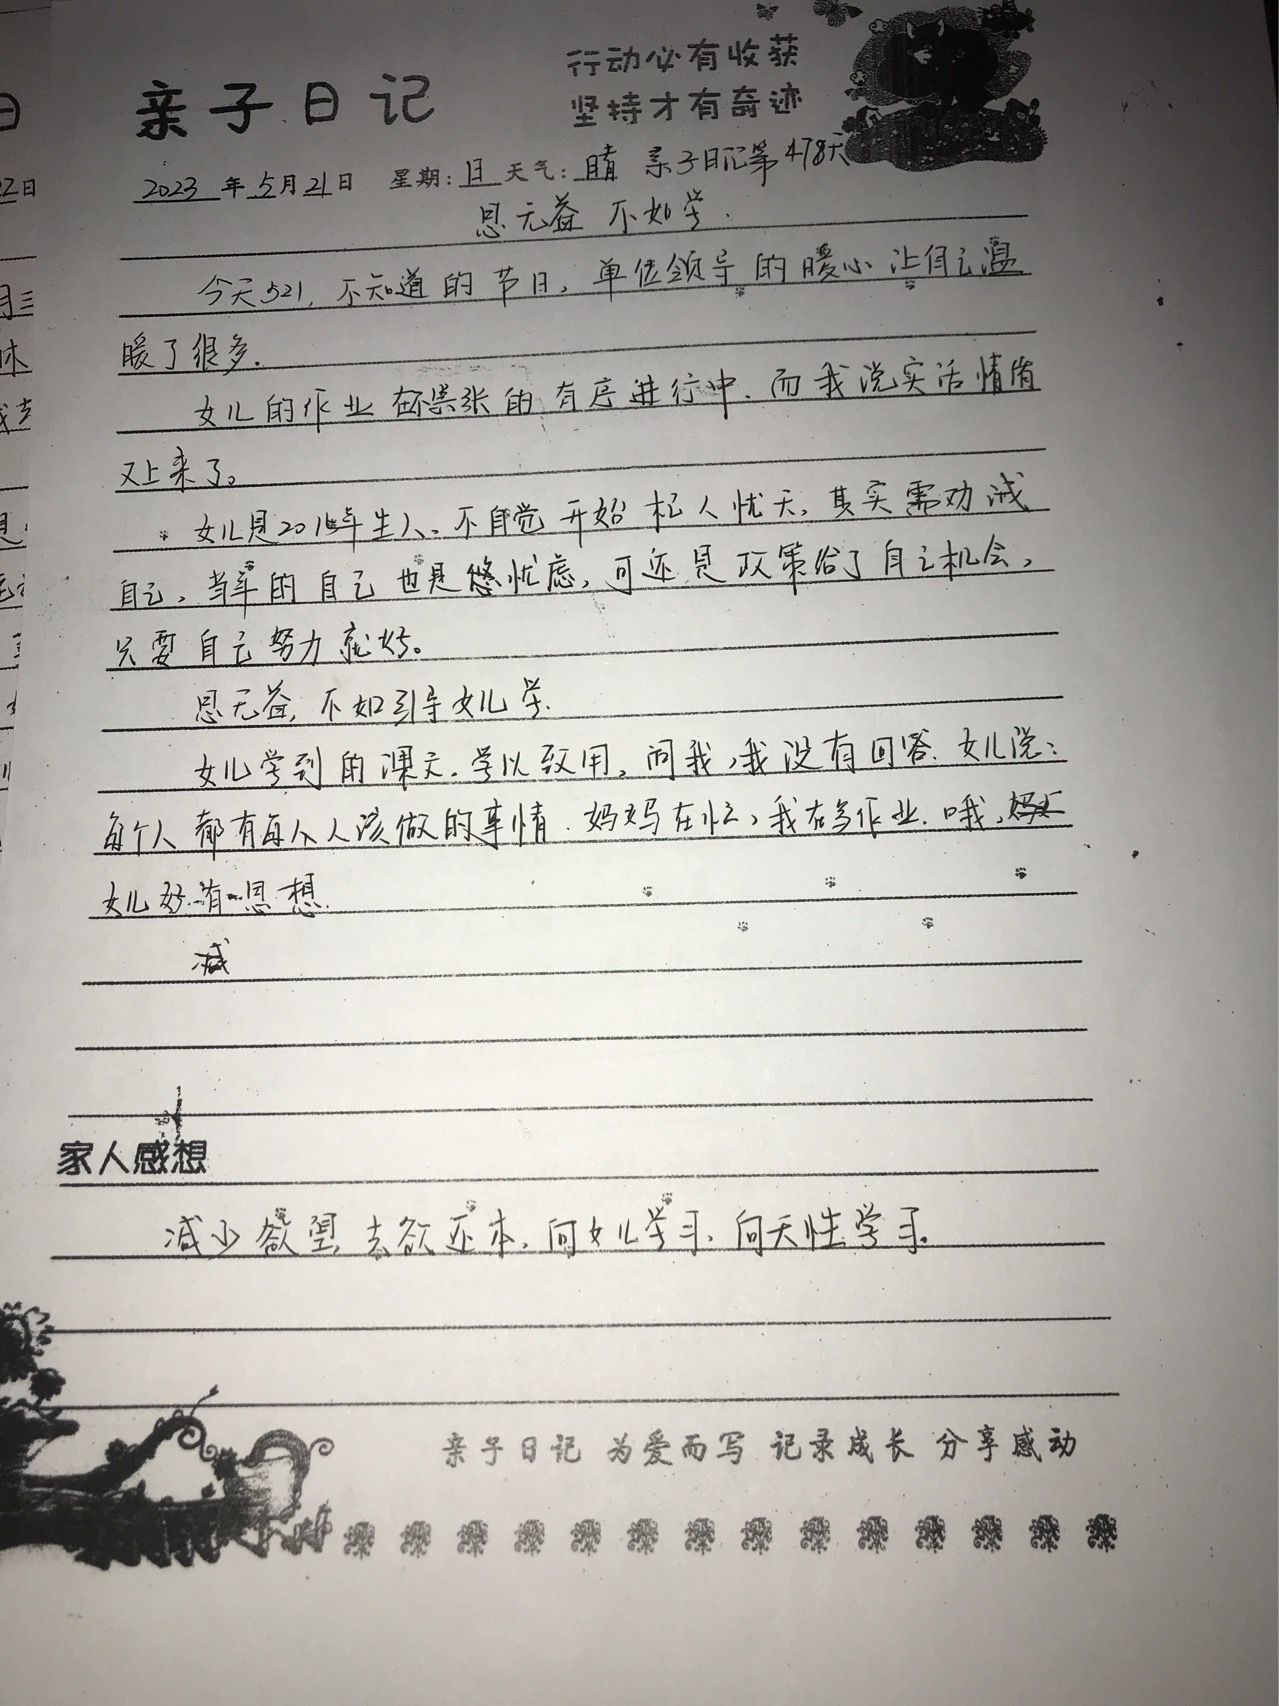 亲子日记
行动必有收获
坚持才有奇迹
2023年5月21日 星期:日 天气:晴 亲子日记第478天
思无益 不如学.
今天521,不知道的节日,单位领导的暖心让自己温
暖了很多.
女儿的作业在紧张的有序进行中.而我说实话情绪
又上来了。
女儿是2016年生人、不自觉开始杞人忧天,其实需劝诫
自己,当年的自己也是悠忧虑,可还是政策给了自己机会,
只要自己努力就好。
思无益,不如引导女儿学.
女儿学到的课文.学以致用,问我,我没有回答.女儿说:
每个人都有每个人该做的事情.妈妈在忙,我在写作业.哦,
女儿好有思想.
减
家人感想
减少欲望,去欲还本,向女儿学习、向天性学习。
亲子日记 为爱而写 记录成长 分享感动